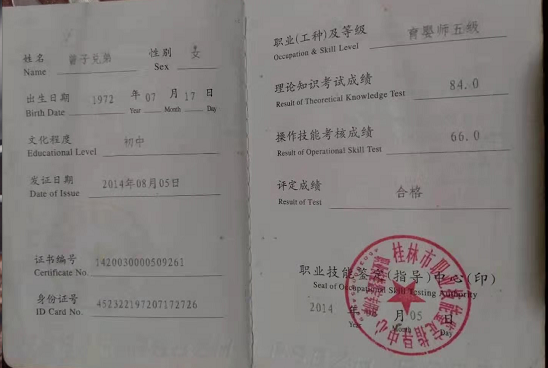 姓名 性别 女
Name Sex
出生日期 1972 年 07 月 17 日
Birth Date Year Month Day
文化程度 初中
Educational Level
发证日期 2014年08月05日
Date of Issue
证书编号 1420030000509261
Certificate No.
身份证号 452322197207172726
ID Card No.
职业(工种)及等级 育婴师五级
Occupation & Skill Level
理论知识考试成绩 84.0
Result of Theoretical Knowledge Test
操作技能考核成绩 66.0
Result of Operational Skill Test
评定成绩 合格
Result of Test
职业技能鉴定(指导)中心(印)
Seal of Occupational Skill Testing Authority
2014 年 月 05 日
Year Month Day